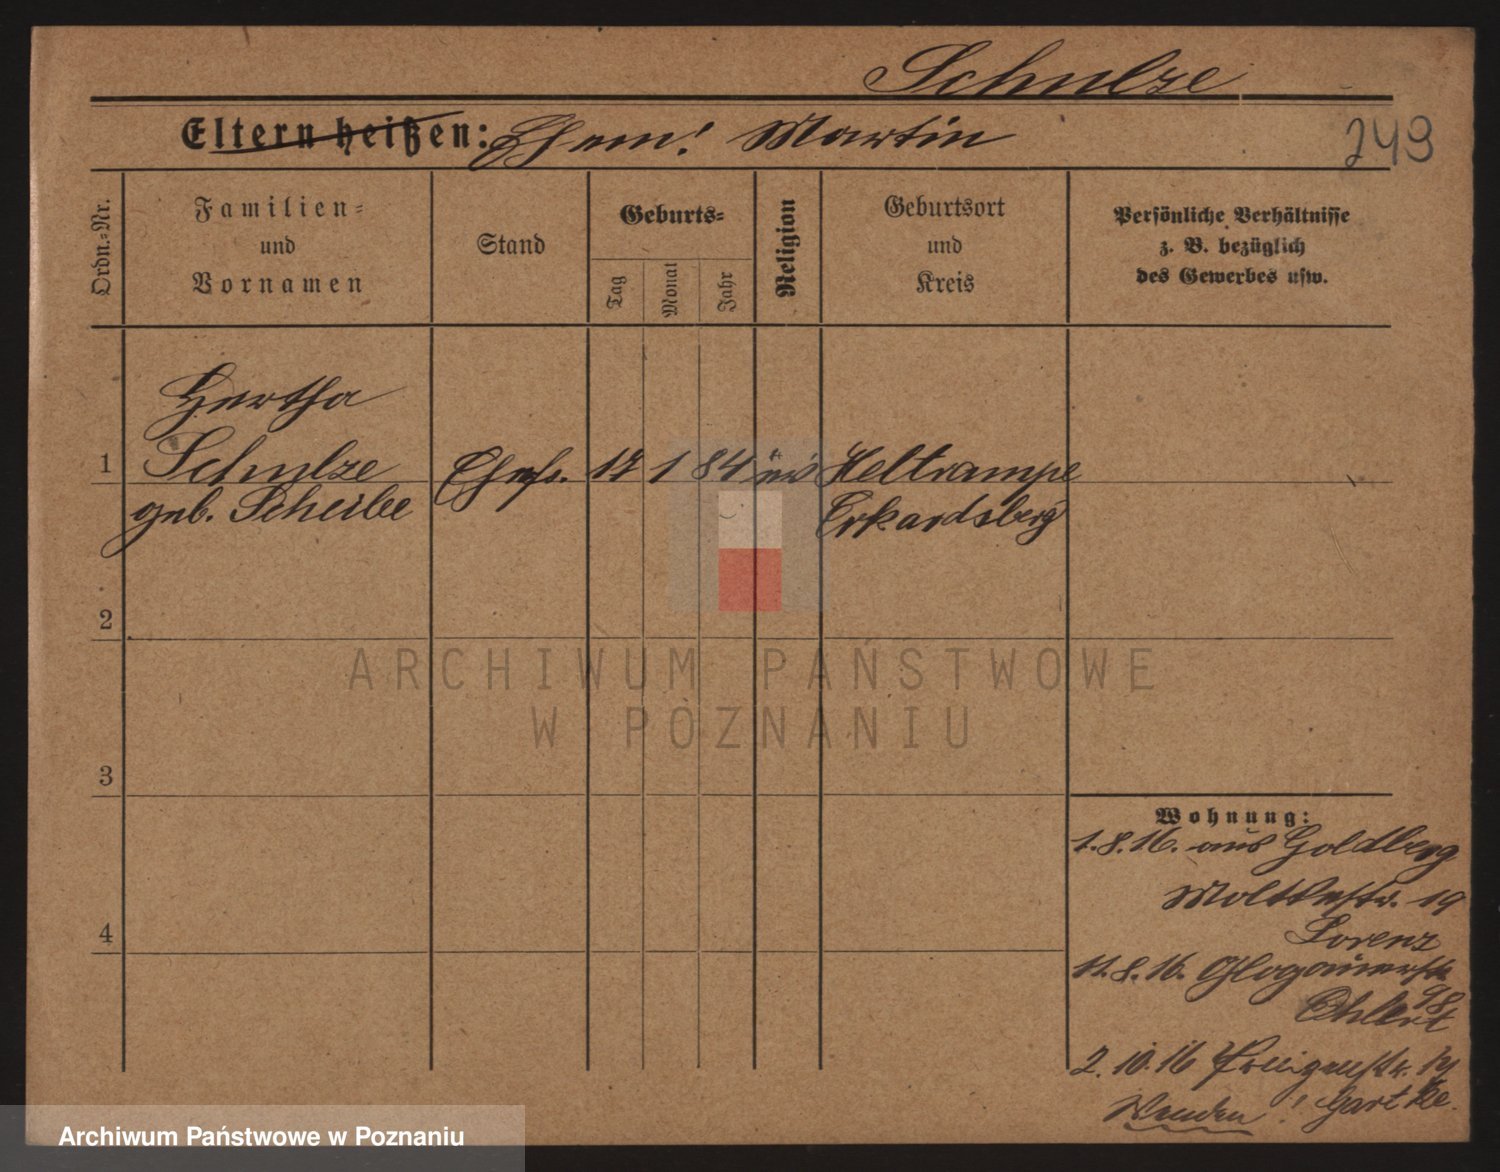 Schulze
Eltern heißen: Ehem! Martin
249
Ordn.-Nr.
Familien-
und
Vornamen
Stand
Geburts-
Tag
Monat
Jahr
Religion
Geburtsort
und
Kreis
Persönliche Verhältnisse
z. B. bezüglich
des Gewerbes usw.
Hertha
1 Schulze Ehefr. 17 1 84 Heltrampe
geb. Scheibe Eckardsberg
2
3
4
Wohnung:
1.8.16. aus Goldberg
Moltkestr. 19
Lorenz
11.8.16. Glogauerstr.
98
Ohlert
2.10.16
Wenden!
ARCHIWUM PAŃSTWOWE
W POZNANIU
Archiwum Państwowe w Poznaniu